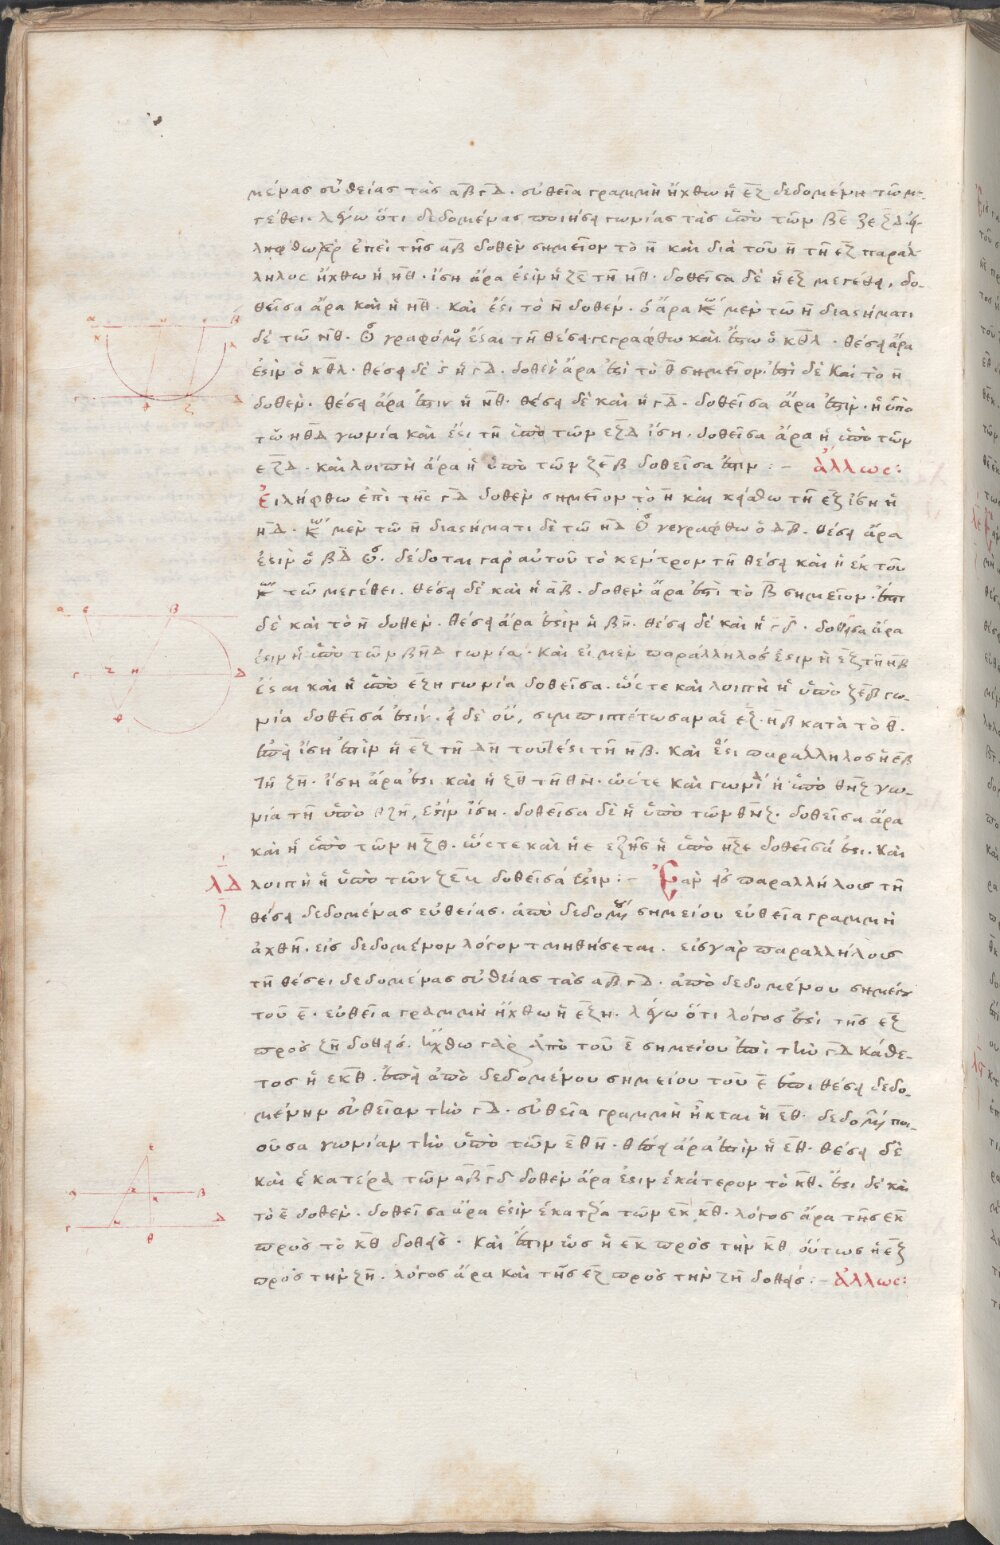 μένας εὐθείας τὰς αβ γδ. εὐθεῖα γραμμὴ ἤχθω ἡ εζ δεδομένη τῶ με
γέθει. λέγω ὅτι δεδομένας ποιήσει γωνίας τὰς ὑπὸ τῶν βε ζ εζδ. εἰ
λήφθω γὰρ ἐπὶ τῆς αβ δοθὲν σημεῖον τὸ η καὶ διὰ τοῦ η τῆ εζ παράλ
ληλος ἤχθω ἡ ηθ. ἴση ἄρα ἐστὶν ἡ ζε τῆ ηθ. δοθεῖσα δὲ ἡ εζ μεγέθει, δο
θεῖσα ἄρα καὶ ἡ ηθ. καὶ ἔστι τὸ η δοθέν. ὁ ἄρα μὲν τῶ η διαστήματι
δὲ τῶ ηθ. γραφόμενος ἔσται τῆ θέσει γεγράφθω καὶ ἔστω ὁ κθλ. θέσει ἄρα
ἐστὶν ὁ κθλ. θέσει δὲ ἡ γδ. δοθὲν ἄρα ἐστὶ τὸ θ σημεῖον. ἐστὶ δὲ καὶ τὸ η
δοθέν. θέσει ἄρα ἐστὶν ἡ ηθ. θέσει δὲ καὶ ἡ γδ. δοθεῖσα ἄρα ἐστὶν. ἡ ὑπὸ
τῶ ηθδ γωνία καὶ ἔστι τῆ ὑπὸ τῶν εζδ ἴση. δοθεῖσα ἄρα ἡ ὑπὸ τῶν
εζδ. καὶ λοιπὴ ἄρα ἡ ὑπὸ τῶν ζεβ δοθεῖσα ἐστιν :– ἄλλως:
Εἰλήφθω ἐπὶ τῆς γδ δοθὲν σημεῖον τὸ η καὶ κείσθω τῆ εζ ἴση ἡ
ηδ. μὲν τῶ η διαστήματι δὲ τῶ ηδ γεγράφθω ὁ δβ. θέσει ἄρα
ἐστὶν ὁ βδ. δέδοται γὰρ αὐτοῦ τὸ κέντρον τῆ θέσει καὶ ἡ ἐκ τοῦ
τῶ μεγέθει. θέσει δὲ καὶ ἡ αβ. δοθὲν ἄρα ἐστὶ τὸ β σημεῖον. ἐστι
δὲ καὶ τὸ η δοθέν. θέσει ἄρα ἐστὶν ἡ βη. θέσει δὲ καὶ ἡ γδ. δοθεῖσα ἄρα
ἐστιν ἡ ὑπὸ τῶν βηδ γωνία. καὶ εἰ μὲν παράλληλός ἐστιν ἡ εζ τῆ ηβ
ἔσται καὶ ἡ ὑπὸ εζη γωνία δοθεῖσα. ὥστε καὶ λοιπὴ ἡ ὑπὸ ζεβ γω
νία δοθεῖσά ἐστίν. εἰ δὲ οὔ, συμπιπτέτωσαν αἱ εζ. ηβ κατὰ τὸ θ.
ἐπεὶ ἴση ἐστὶν ἡ εζ τῆ δη τουτέστι τῆ ηβ. καὶ ἔστι παράλληλος ἡ εβ
τῆ ζη. ἴση ἄρα ἐστι καὶ ἡ ζθ τῆ θη. ὥστε καὶ γωνία ἡ ὑπὸ θηζ γω
νία τῆ ὑπὸ θζη, ἐστὶν ἴση. δοθεῖσα δὲ ἡ ὑπὸ τῶν θηζ. δοθεῖσα ἄρα
καὶ ἡ ὑπὸ τῶν ηζθ. ὥστε καὶ ἡ ε εζῆς ἡ ὑπὸ ηζε δοθεῖσά ἐστι. καὶ
λδ λοιπὴ ἡ ὑπὸ τῶν ζεη δοθεῖσά ἐστιν :– Ἐὰν εἰς παραλλήλους τῆ
θέσει δεδομένας εὐθείας. ἀπὸ δεδομένου σημείου εὐθεῖα γραμμὴ
ἀχθῆ. εἰς δεδομένον λόγον τμηθήσεται. εἰς γὰρ παραλλήλους
τῆ θέσει δεδομένας εὐθείας τὰς αβ γδ. ἀπὸ δεδομένου σημείου
τοῦ ε. εὐθεῖα γραμμὴ ἤχθω ἡ εζη. λέγω ὅτι λόγος ἐστὶ τῆς εζ
πρὸς ζη δοθείς. ἤχθω γὰρ ἀπὸ τοῦ ε σημείου ἐπὶ τὴν γδ κάθε
τος ἡ εκθ. ἐπεὶ ἀπὸ δεδομένου σημείου τοῦ ε ἐπι θέσει δεδο
μένην εὐθεῖαν τὴν γδ. εὐθεῖα γραμμὴ ἦκται ἡ εθ. δεδομένην ποι
οῦσα γωνίαν τὴν ὑπὸ τῶν εθη. θέσει ἄρα ἐστὶν ἡ εθ. θέσει δὲ
καὶ ἑκατέρα τῶν αβ γδ δοθὲν ἄρα ἐστιν ἑκάτερον τὸ κθ. ἔστι δὲ καὶ
τὸ ε δοθέν. δοθεῖσα ἄρα ἐστὶν ἑκατέρα τῶν εκ κθ. λόγος ἄρα τῆς εκ
πρὸς τὸ κθ δοθείς. καὶ ἐστιν ὡς ἡ εκ πρὸς τὴν κθ οὕτως ἡ εζ
πρὸς τὴν ζη. λόγος ἄρα καὶ τῆς εζ πρὸς τὴν ζη δοθείς :– ἄλλως: